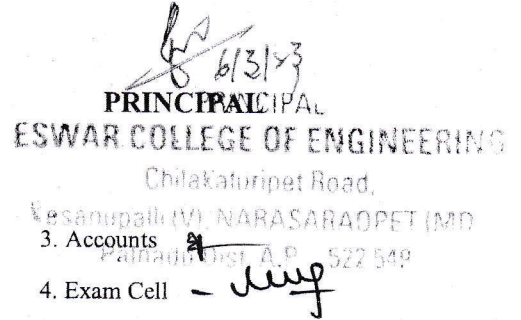 6/3/23
PRINCIPAL PRINCIPAL
ESWAR COLLEGE OF ENGINEERING
Chilakaluripet Road,
Kesanupalli (V), NARASARAOPET (MD
3. Accounts
Palnadu Dist. A.P. 522 549
4. Exam Cell -